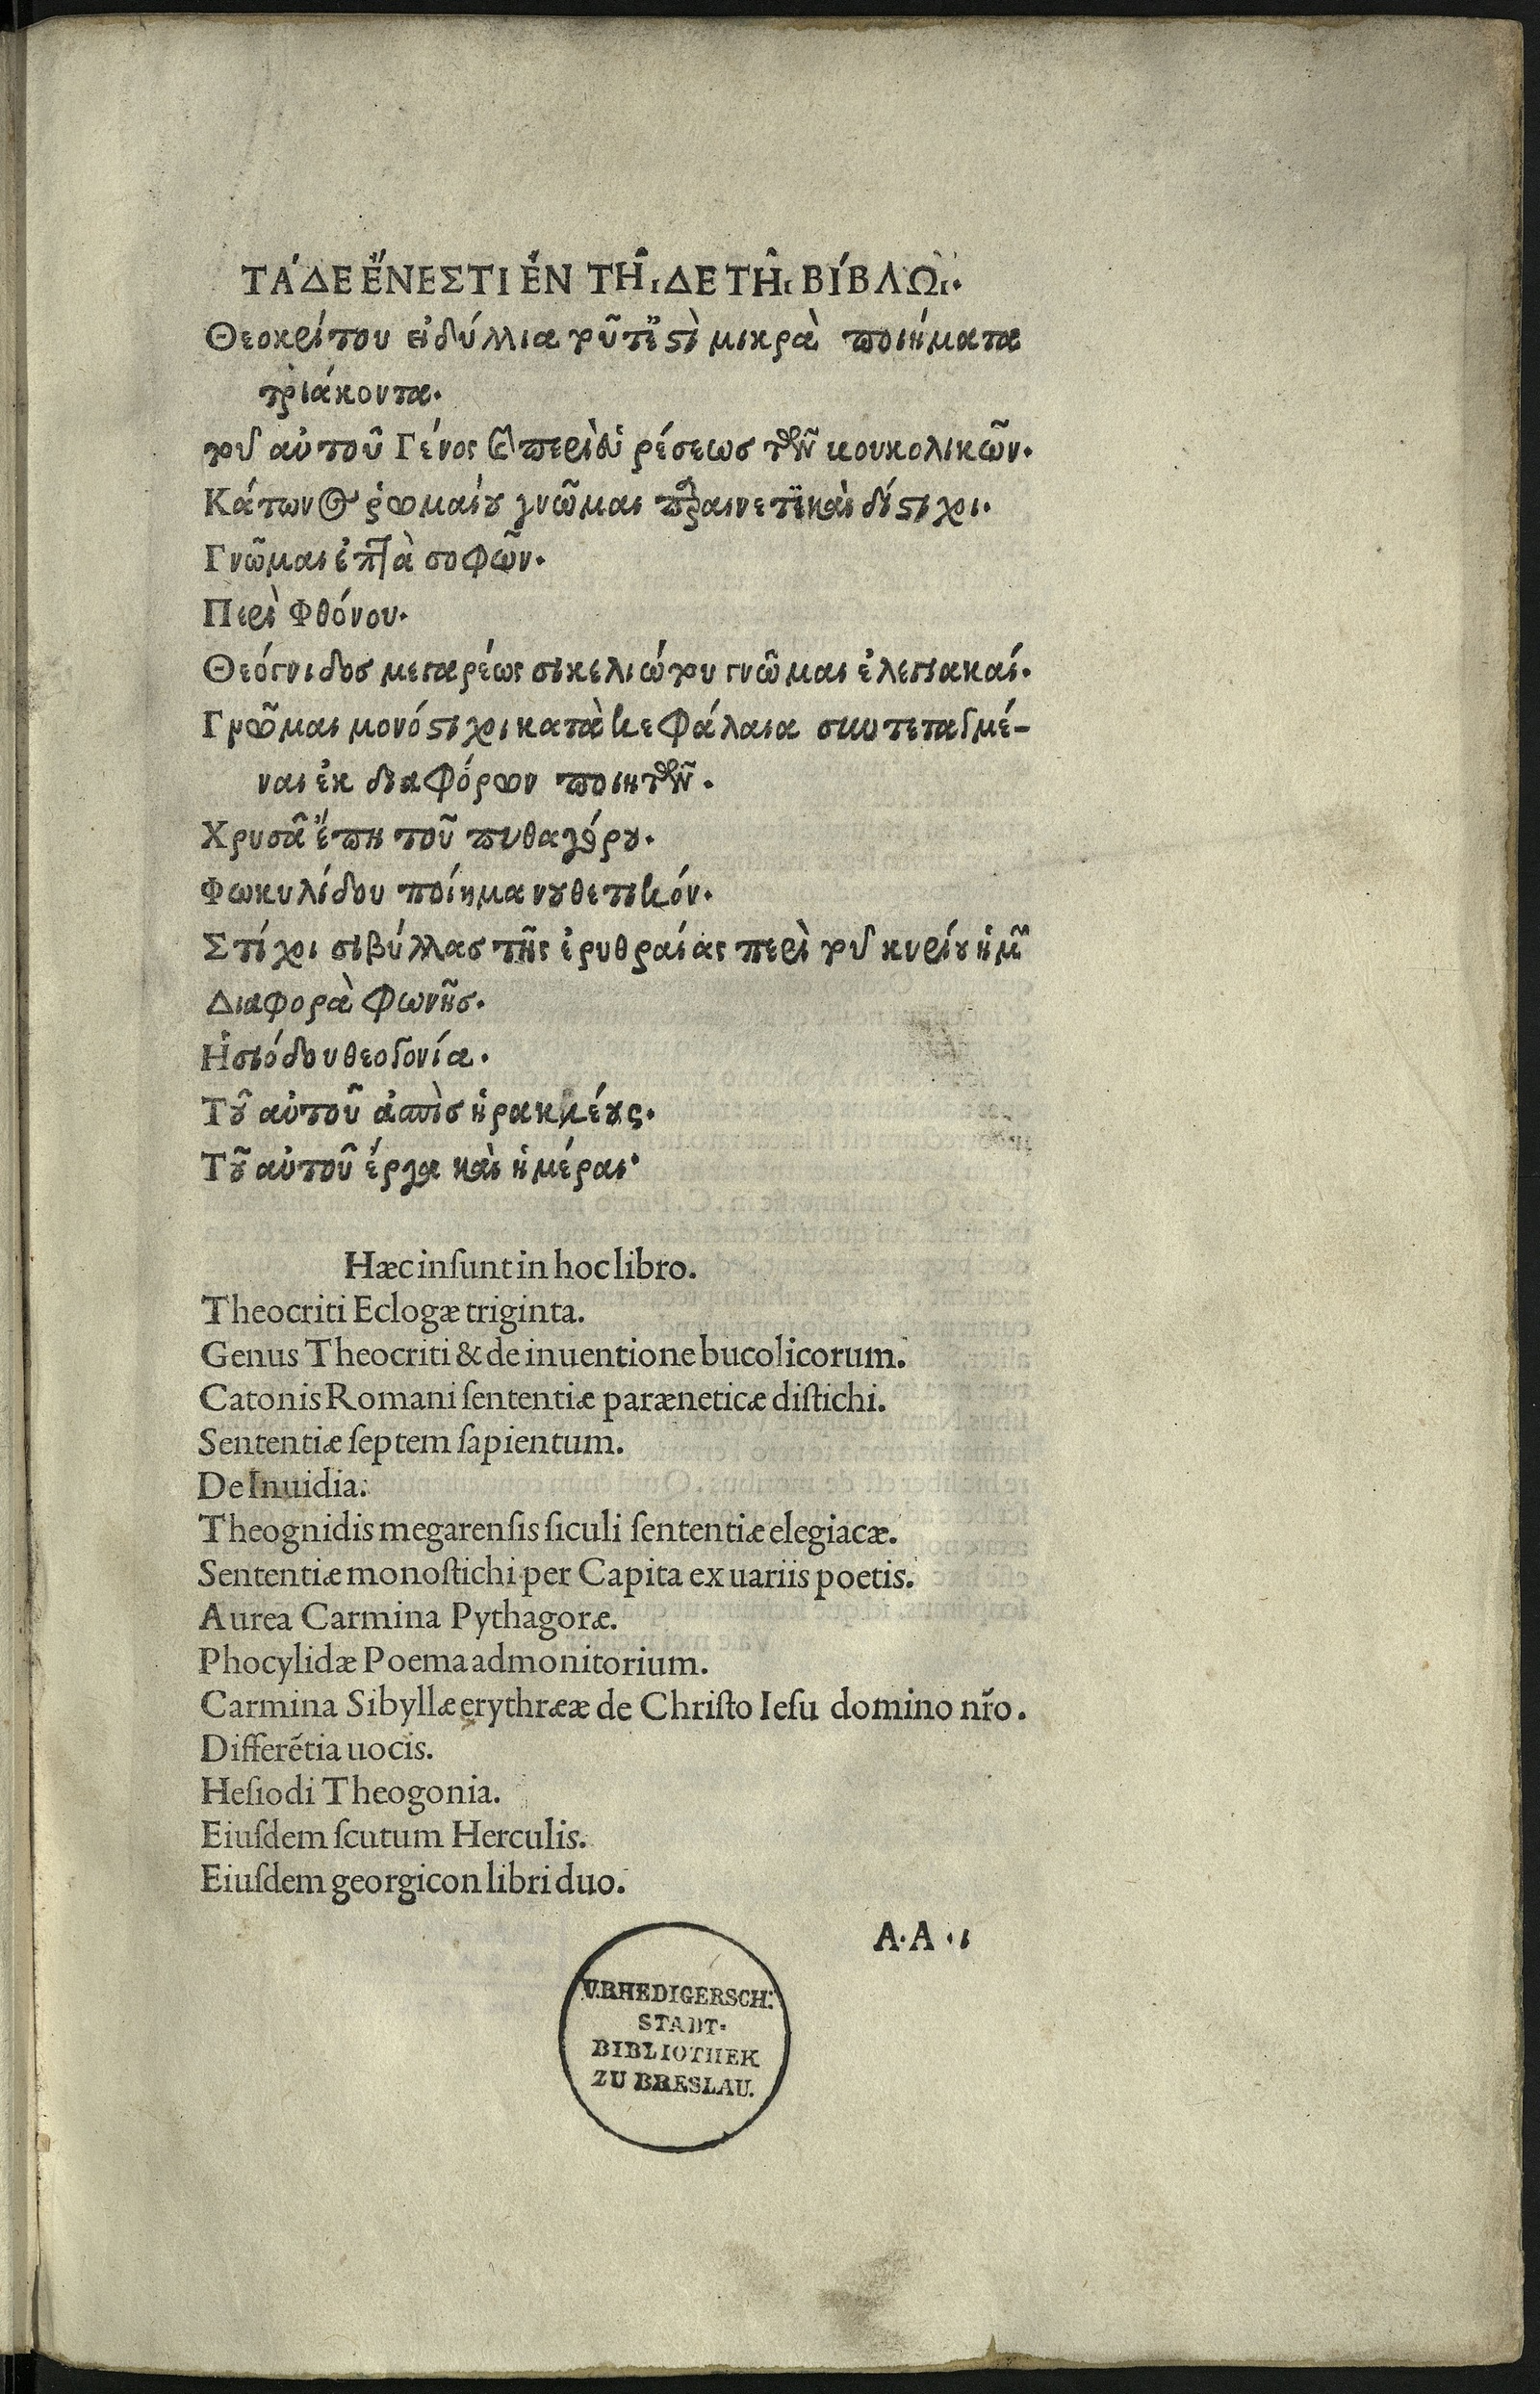 ΤΆΔΕ ἜΝΕΣΤΙ ἘΝ ΤΗ͂ΙΔΕ ΤΗ͂Ι ΒΊΒΛΩΙ.
Θεοκρίτου εἰδύλλια τοῦτέϛὶ μικρὰ ποιήματα
τριάκοντα.
τοῦ αὐτοῦ Γένος καὶ περὶ εὑρέσεως τῶν κουκολικῶν.
Κάτωνος ῥωμαίου γνῶμαι παραινετικαὶ δίϛιχοι.
Γνῶμαι ἑπτὰ σοφῶν.
Περὶ Φθόνου.
Θεόγνιδος μεγαρέως σικελιώτου γνῶμαι ἐλεγιακαί.
Γνῶμαι μονόϛιχοι κατὰ κεφάλαια συντεταγμέ-
ναι ἐκ διαφόρων ποιητῶν.
Χρυσᾶ ἔπη τοῦ πυθαγόρου.
Φωκυλίδου ποίημα νουθετικόν.
Στίχοι σιβύλλας τῆς ἐρυθραίας περὶ τοῦ κυρίου ἡμῶν
Διαφορὰ φωνῆς.
Ἡσιόδου θεογονία.
Τοῦ αὐτοῦ ἀσπὶς ἡρακλέους.
Τοῦ αὐτοῦ ἔργα καὶ ἡμέραι.
Hæc inſunt in hoc libro.
Theocriti Eclogæ triginta.
Genus Theocriti & de inuentione bucolicorum.
Catonis Romani ſententiæ paræneticæ diſtichi.
Sententiæ ſeptem ſapientum.
De Inuidia.
Theognidis megarenſis ſiculi ſententiæ elegiacæ.
Sententiæ monoſtichi per Capita ex uariis poetis.
Aurea Carmina Pythagoræ.
Phocylidæ Poema admonitorium.
Carmina Sibyllæ erythrææ de Chriſto Ieſu domino nr̃o.
Differẽtia uocis.
Heſiodi Theogonia.
Eiuſdem ſcutum Herculis.
Eiuſdem georgicon libri duo.
A.A .ι
V.RHEDIGERSCH:
STADT-
BIBLIOTHEK
ZU BRESLAU.